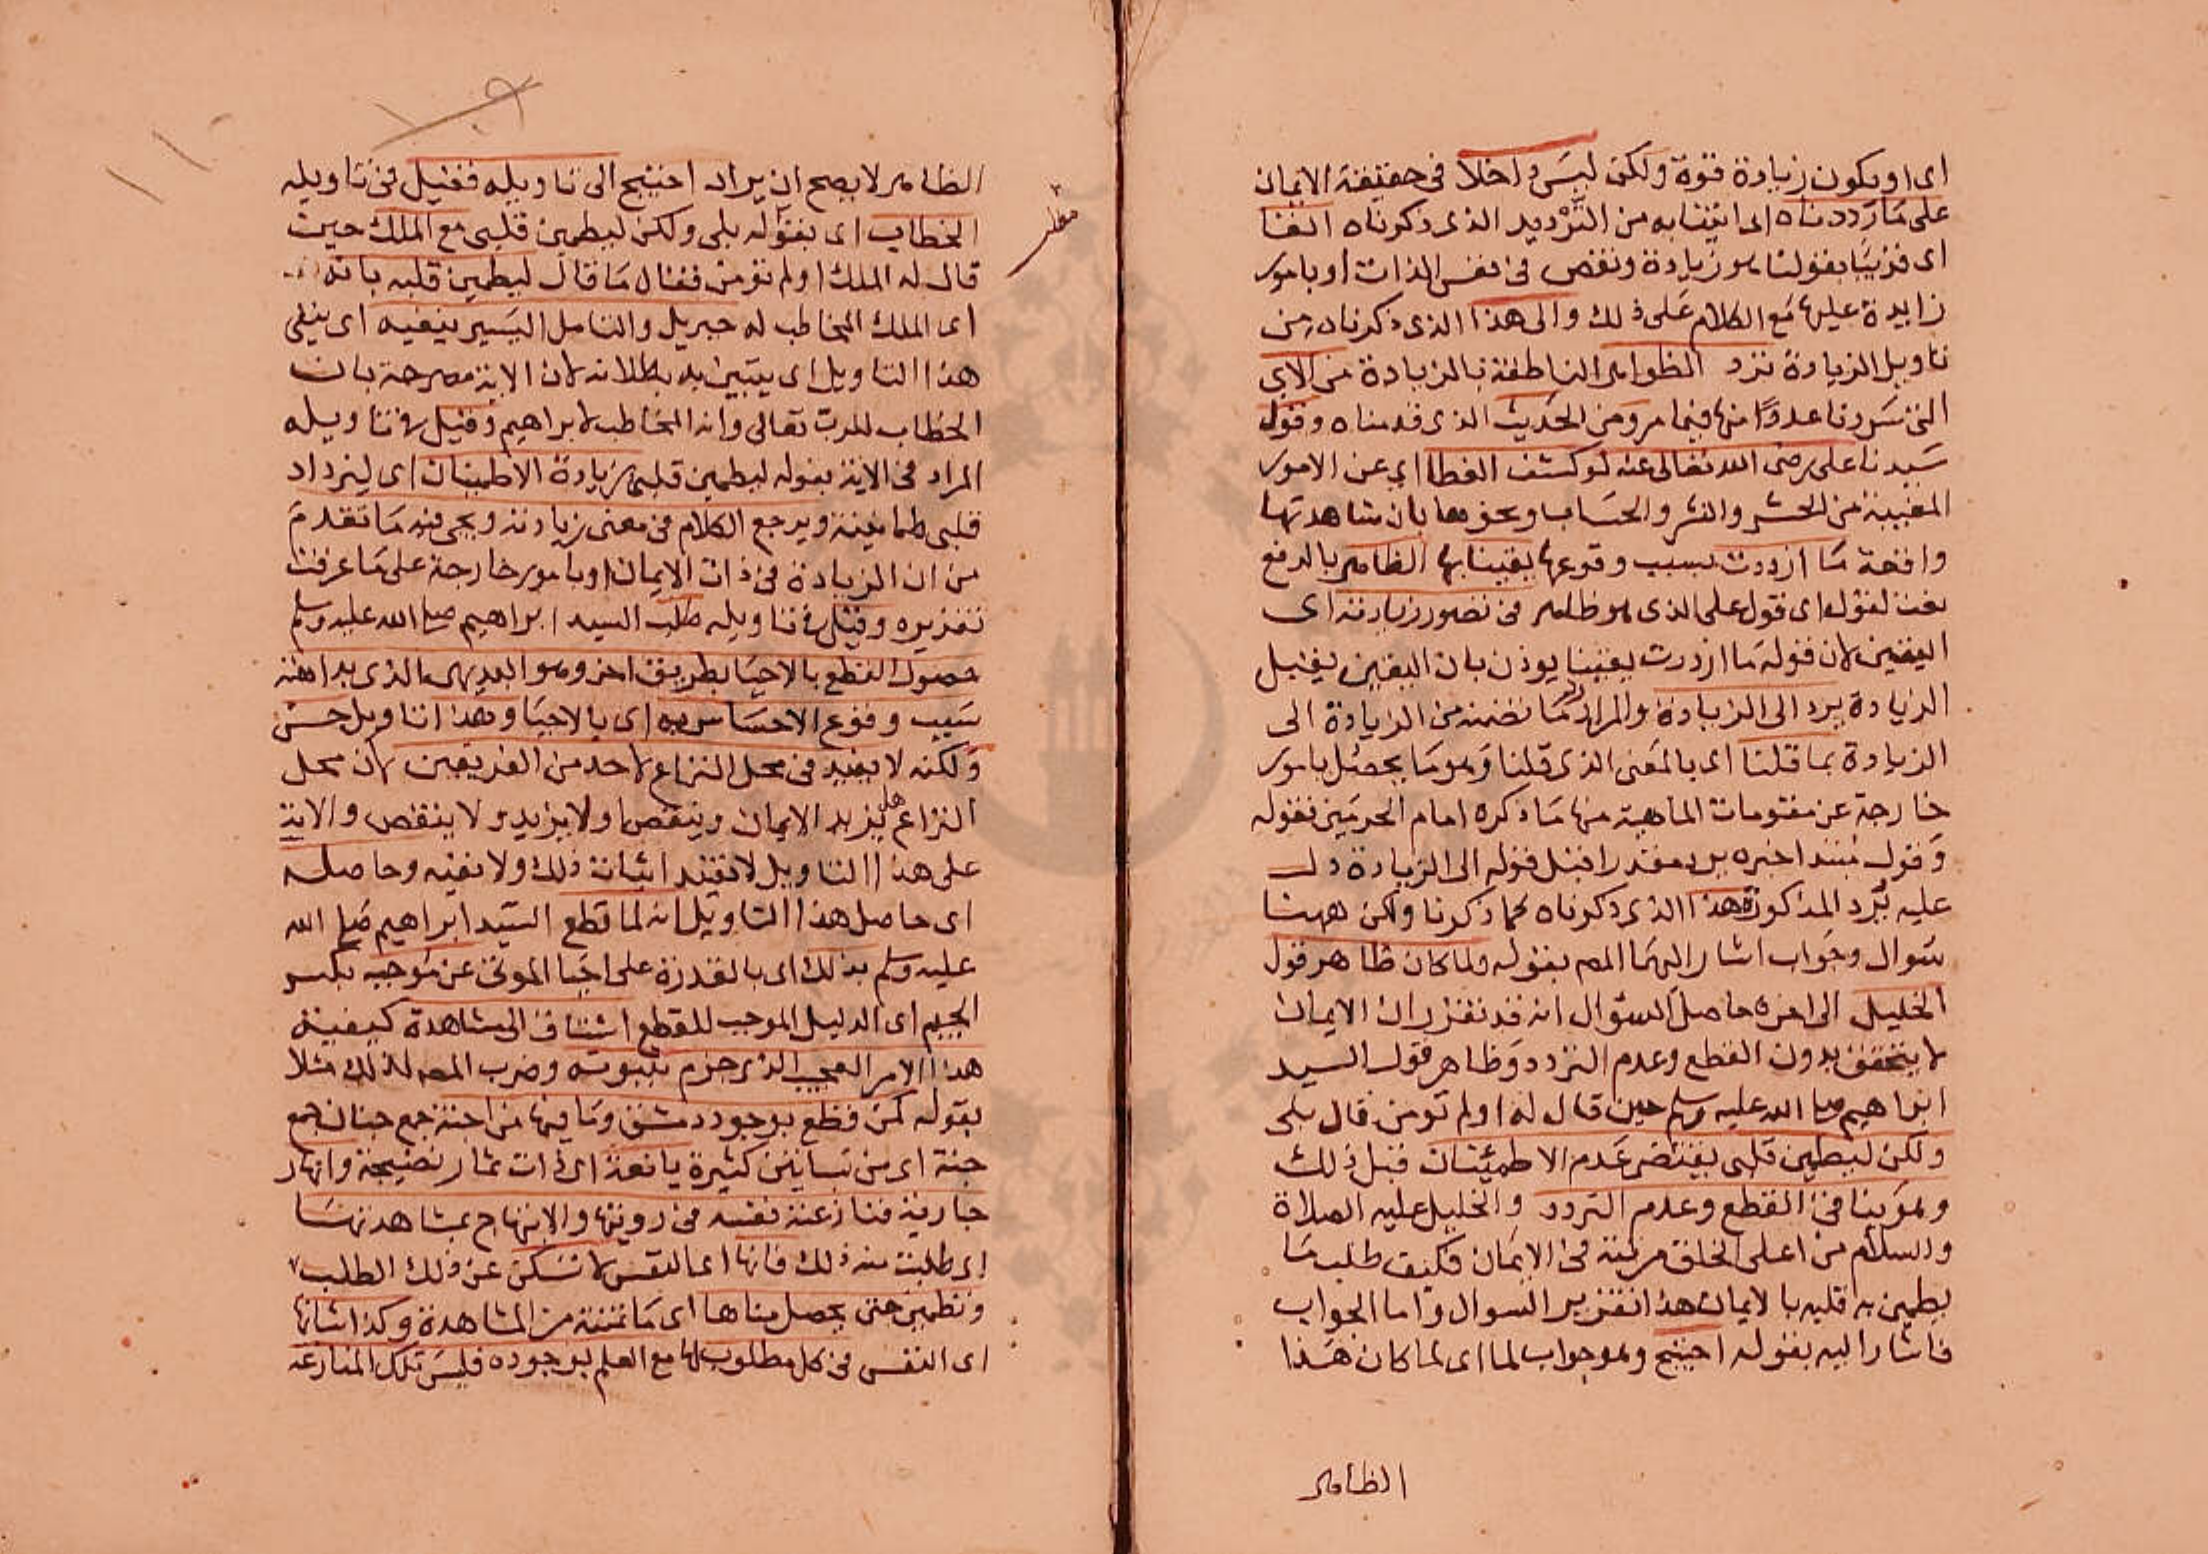 اى او يكون زيادة قوة ولكن ليس داخلا فى حقيقة الايمان
على ما رددناه اى اتينا به من الترديد الذى ذكرناه انفا
اى قريبا بقولنا هو زيادة ونقص فى نفس الذات او بامور
زايدة عليها مع الكلام على ذلك والى هذا الذى ذكرناه من
تاويل الزيادة نرد الظواهر الناطقة بالزيادة من الاى
التى سردنا عددا منها فيما مر ومن الحديث الذى قدمناه وقول
سيدنا على رضى الله تعالى عنه لو كشف الغطا اى عن الامور
المغيبة من الحشر والنشر والحساب ونحوها بان شاهدتها
واقعة ما ازددت بسبب وقوعها يقينا بها الظاهر بالرفع
نعت لقوله اى قول على الذى هو ظاهر فى تصور زيادته اى
اليقين لان قوله ما ازددت يقينا يوذن بان اليقين يقبل
الزيادة يرد الى الزيادة والمراد رد ما تضمنه من الزيادة الى
الزيادة بما قلنا اى بالمعنى الذى قلنا وهو ما يحصل بامور
خارجة عن مقومات الماهية منها ما ذكره امام الحرمين فقوله
وقول مبتدا خبره يرد مقدرا قبل قوله الى الزيادة دل
عليه نرد المذكورة هذا الذى ذكرناه كما ذكرنا ولكن ههنا
سوال وجواب اشار اليهما المص بقوله ولما كان ظاهر قول
الخليل الى اخره حاصل السؤال انه قد تقرر ان الايمان
لا يتحقق بدون القطع وعدم التردد وظاهر قول السيد
ابراهيم صلى الله عليه وسلم حين قال له اولم تومن قال بلى
ولكن ليطمين قلبى يقتضى عدم الاطمئنان قبل ذلك
وهو ينافى القطع وعدم التردد والخليل عليه الصلاة
والسلام من اعلى الخلق مرتبة فى الايمان فكيف طلب ما
يطمين به قلبه بالايمان هذا تقرير السوال واما الجواب
فاشار اليه بقوله احتيج وهو جواب لما اى لما كان هذا
الظاهر
١٠٩
١١٠
الظاهر لا يصح ان يراد احتيج الى تاويله فقيل فى تاويله
الخطاب اى بقوله بلى ولكن ليطمين قلبى مع الملك حين
قال له الملك اولم تؤمن فقال ما قال ليطمين قلبه بانه
اى الملك المخاطب له جبريل والتامل اليسير ينفيه اى ينفى
هذا التاويل اى يتبين به بطلانه لان الاية مصرحة بان
الخطاب للرب تعالى وانه المخاطب لابراهيم وقيل فى تاويله
المراد فى الاية بقوله ليطمين قلبى زيادة الاطمينان اى ليزداد
قلبى طمانينة ويرجع الكلام فى معنى زيادته ويجى فيه ما تقدم
من ان الزيادة فى ذات الايمان او بامور خارجة على ما عرفت
تقريره وقيل فى تاويله طلب السيد ابراهيم صلى الله عليه وسلم
حصول القطع بالاحيا بطريق اخر وهو البديهى الذى بداهته
سبب وقوع الاحساس به اى بالاحيا وهذا التاويل حسن
ولكنه لا يفيد فى محل النزاع لاحد من الفريقين لان محل
النزاع هل يزيد الايمان وينقص اولا يزيد ولا ينقص والاية
على هذا التاويل لا تفيد اثبات ذلك ولا نفيه وحاصله
اى حاصل هذا التاويل انه لما قطع السيد ابراهيم صلى الله
عليه وسلم بذلك اى بالقدرة على احيا الموتى عن موجبه بكسر
الجيم اى الدليل الموجب للقطع اشتاق الى مشاهدة كيفية
هذا الامر العجيب الذى جزم بثبوته وضرب المص لذلك مثلا
بقوله كمن قطع بوجود دمشق وما فيها من اجنة جمع جنان جمع
جنة اى من بساتين كثيرة يانعة اى ذات ثمار نضيجة وانهار
جارية فنازعته نفسه فى رويتها والابتهاج بمشاهدتها
اى طلبت منه ذلك فانها اى النفس لا تسكن عن ذلك الطلب
وتطمين حتى يحصل مناها اى ما تمنته من المشاهدة وكذا شانها
اى النفس فى كل مطلوب لها مع العلم بوجوده فليس تلك المنازعة